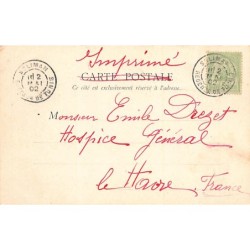 Imprimé
CARTE POSTALE
Ce côté est exclusivement réservé à l'adresse.
Monsieur Emile Drezet
Hospice Général
le Havre
France